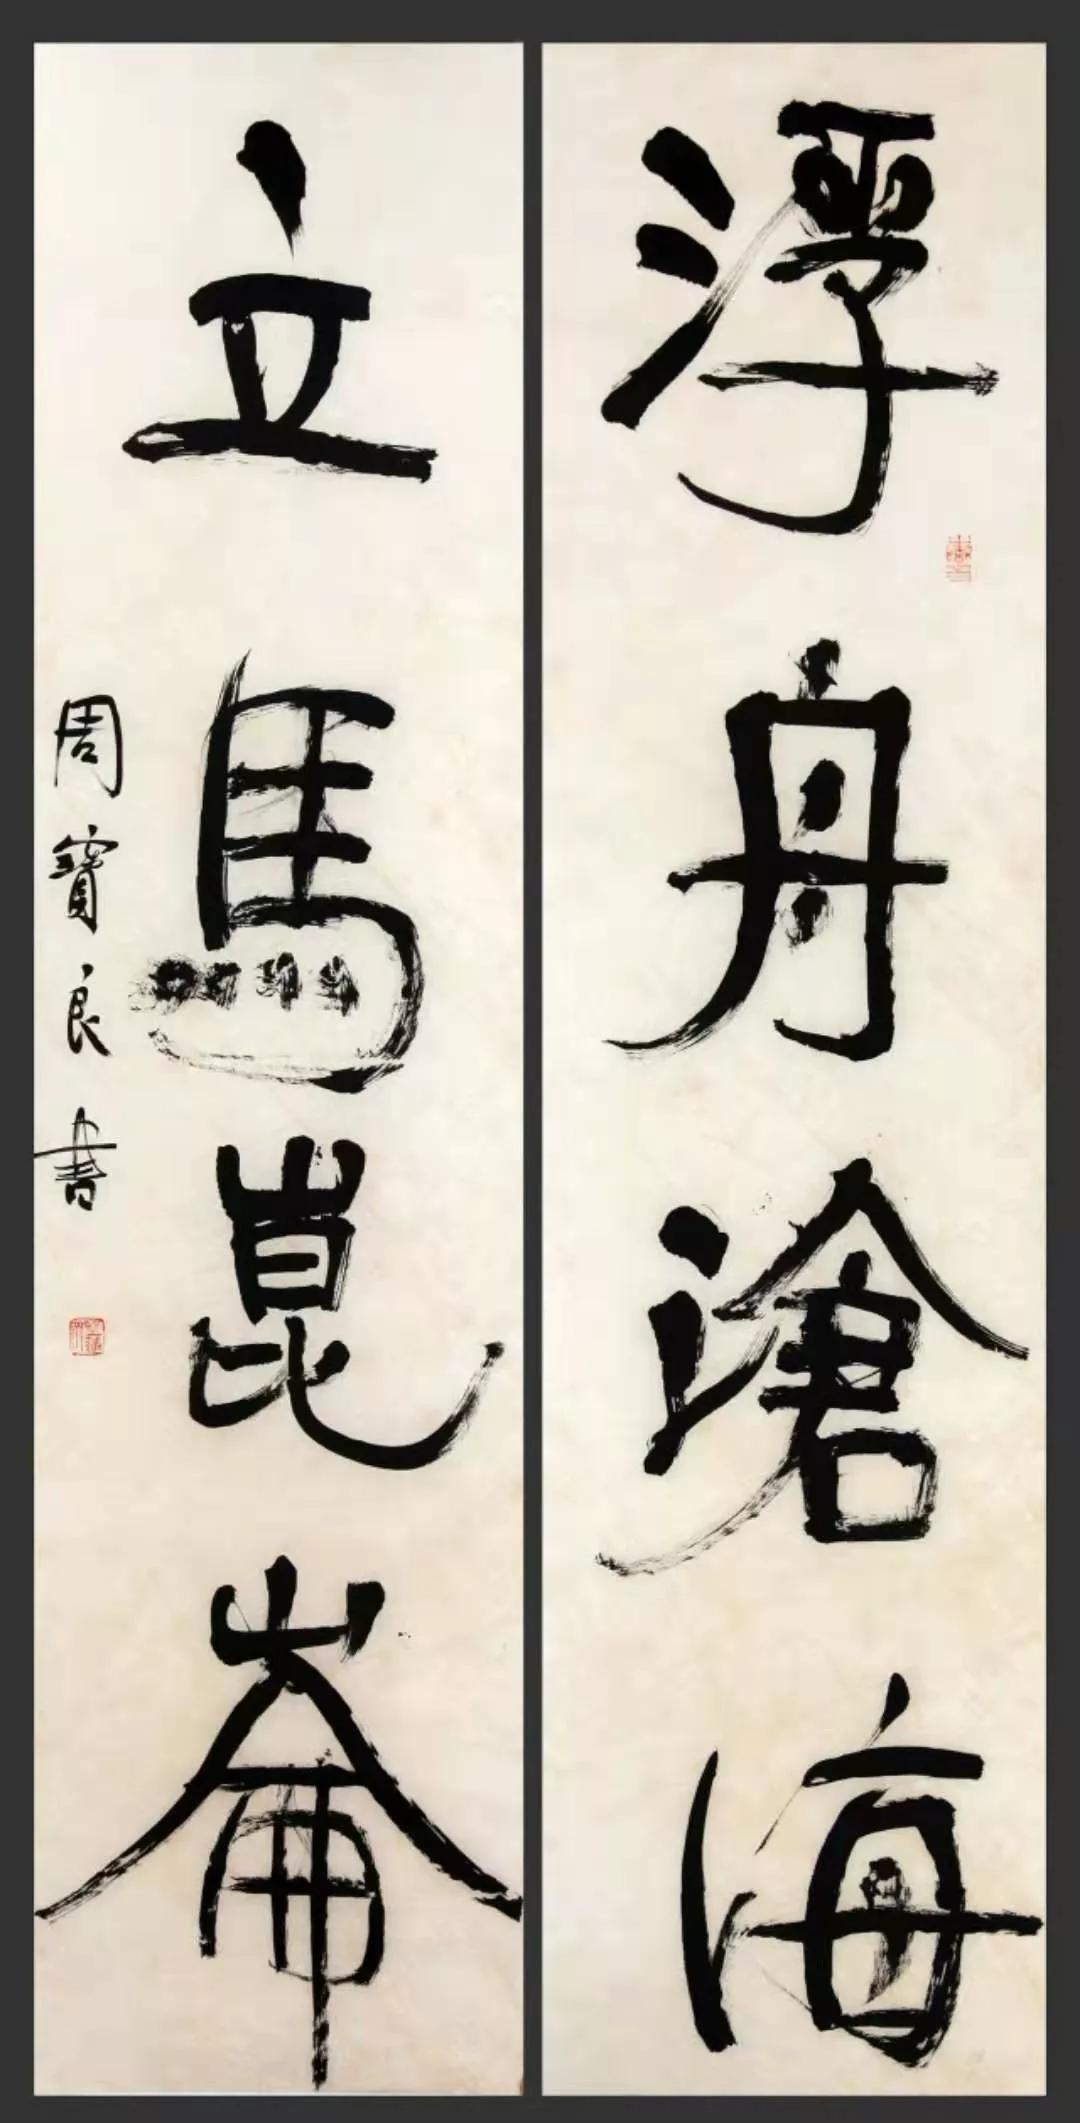 浮舟滄海
立馬崑崙
周寶良書